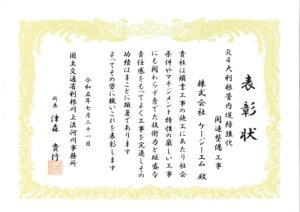 表彰状
R4大利根管内堤防強化
関連整備工事
株式会社 ケージーエム 殿
貴社は頭書工事の施工にあたり社会
条件やマネジメント特性の厳しい工事
にも関わらず
技術力と旺盛な
責任感をもってよく工事を完遂しその
功績はまことに顕著であります
よってその労に報いこれを表彰します
令和五年七月二十一日
国土交通省利根川上流河川事務所
所長 津森 貴行